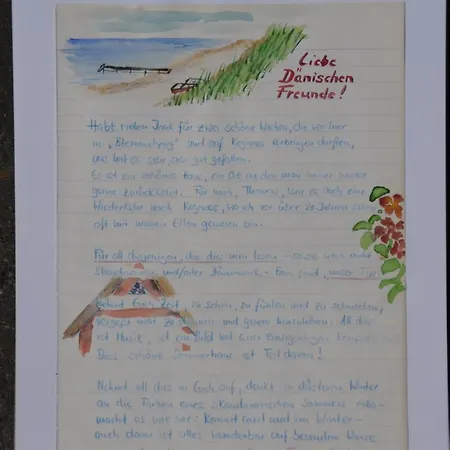 Liebe
Dänischen
Freunde!
Habt vielen Dank für zwei schöne Wochen, die wir hier
in "Blommelyng" und auf Kegnæs verbringen durften,
uns hat es sehr, sehr gut gefallen.
Es ist ein schönes Haus, ein Ort an den man immer wieder
gerne zurückkehrt. Für mich, Thomas, war es auch eine
Wiederkehr nach Kegnæs, wo ich vor über 20 Jahren schon
oft mit meinen Eltern gewesen bin.
Für all diejenigen, die dies nun lesen - so sie noch nicht
Skandinavien und/oder Dänemark - Fans sind, unser Tip
Nehmt Euch Zeit zu sehen, zu fühlen und zu schmecken,
vergeßt nicht zu staunen und genau hinzuhören: All das
ist Musik, ist ein Bild mit einer einzigartigen
Dies schöne Sommerhaus ist Teil davon!
Nehmt all dies in Euch auf, denkt in düsteren Winter
an die Farben eines Skandinavischen Sommers oder
macht es wie wir: Kommt bald mal im Winter -
auch dann ist alles wunderbar auf besondere Weise